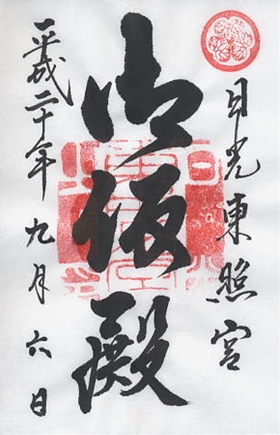 日光東照宮
御仮殿
平成二十年九月六日